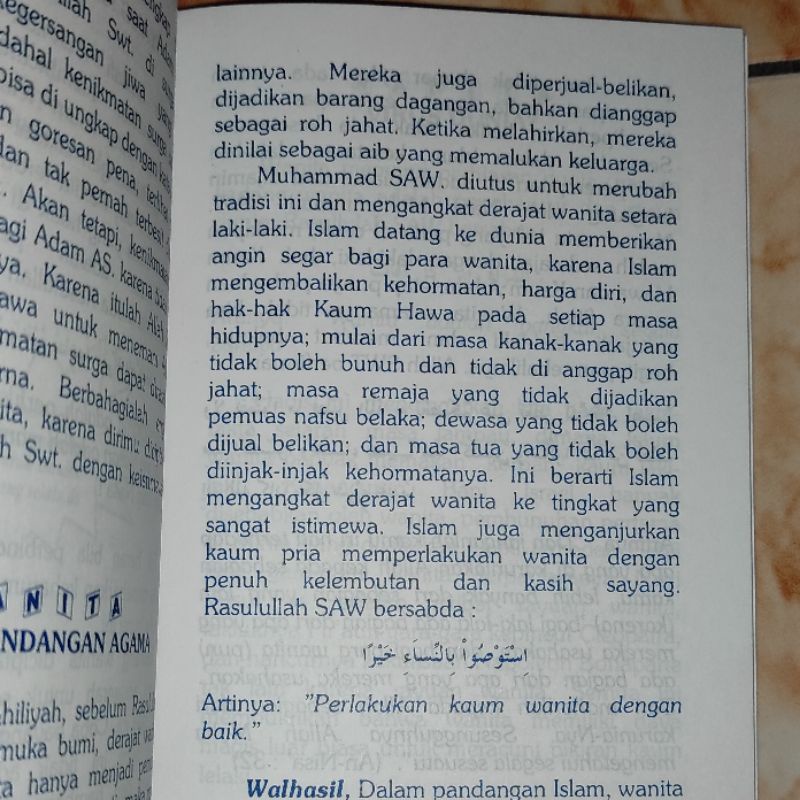 llah Swt. di
kegersangan jiwa yang
dahal kenikmatan surga
bisa di ungkap dengan
n goresan pena,
dan tak pernah
. Akan tetapi,
agi Adam AS. karena
ya. Karena itulah Allah
awa untuk menemani
matan surga dapat
rna. Berbahagialah
ita, karena dirimu
h Swt. dengan
ANITA
NDANGAN AGAMA
hiliyah, sebelum
muka bumi, derajat
ta hanya menjadi
lainnya. Mereka juga diperjual-belikan,
dijadikan barang dagangan, bahkan dianggap
sebagai roh jahat. Ketika melahirkan, mereka
dinilai sebagai aib yang memalukan keluarga.
Muhammad SAW. diutus untuk merubah
tradisi ini dan mengangkat derajat wanita setara
laki-laki. Islam datang ke dunia memberikan
angin segar bagi para wanita, karena Islam
mengembalikan kehormatan, harga diri, dan
hak-hak Kaum Hawa pada setiap masa
hidupnya; mulai dari masa kanak-kanak yang
tidak boleh bunuh dan tidak di anggap roh
jahat; masa remaja yang tidak dijadikan
pemuas nafsu belaka; dewasa yang tidak boleh
dijual belikan; dan masa tua yang tidak boleh
diinjak-injak kehormatanya. Ini berarti Islam
mengangkat derajat wanita ke tingkat yang
sangat istimewa. Islam juga menganjurkan
kaum pria memperlakukan wanita dengan
penuh kelembutan dan kasih sayang.
Rasulullah SAW bersabda :
اِسْتَوْصُواْ بِالنِّسَاءِ خَيْرًا
Artinya: "Perlakukan kaum wanita dengan
baik."
Walhasil, Dalam pandangan Islam, wanita